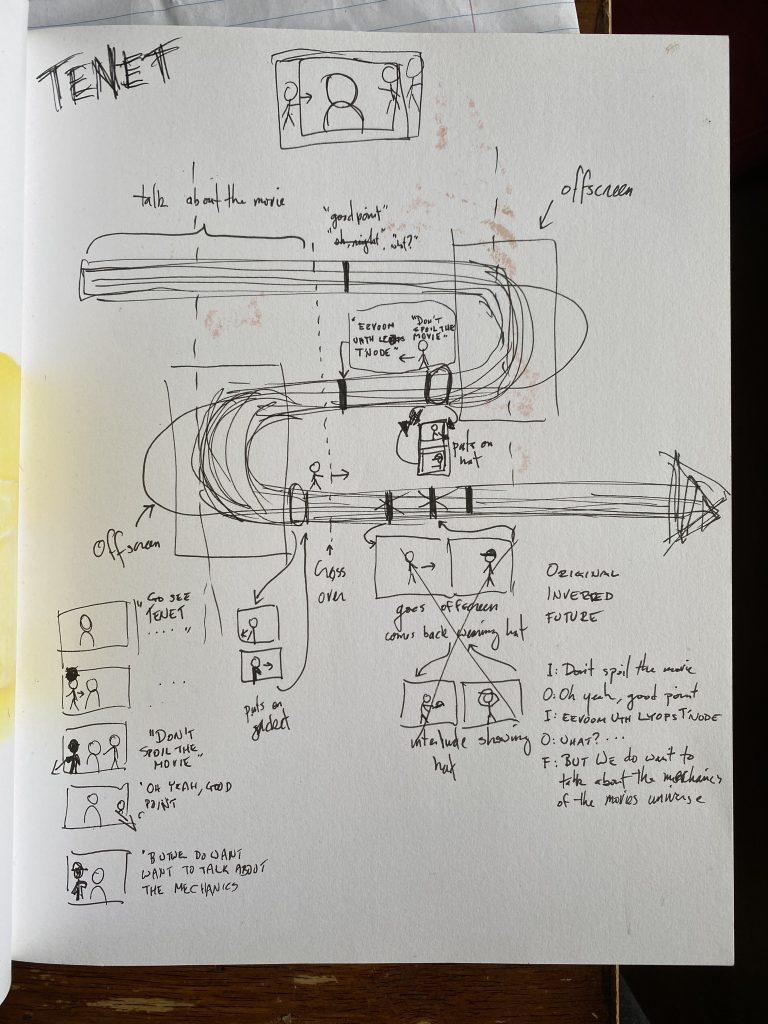 TENET
talk about the movie
offscreen
"good point"
"oh, right", "what?"
"EEVOOM
UTH
T'NODE"
"DON'T
SPOIL THE
MOVIE"
puts on
hat
offscreen
Cross
over
goes offscreen
comes back wearing hat
puts on
jacket
interlude showing
hat
ORIGINAL
INVERTED
FUTURE
I: Don't spoil the movie
O: Oh yeah, good point
I: EEVOOM UTH LYOPS T'NODE
O: WHAT? ...
F: BUT WE DO want to
talk about the mechanics
of the movies universe
"GO SEE
TENET
.....
....
"DON'T
SPOIL THE
MOVIE"
"OH YEAH, GOOD
POINT
"BUT WE DO WANT
WANT TO TALK ABOUT
THE MECHANICS